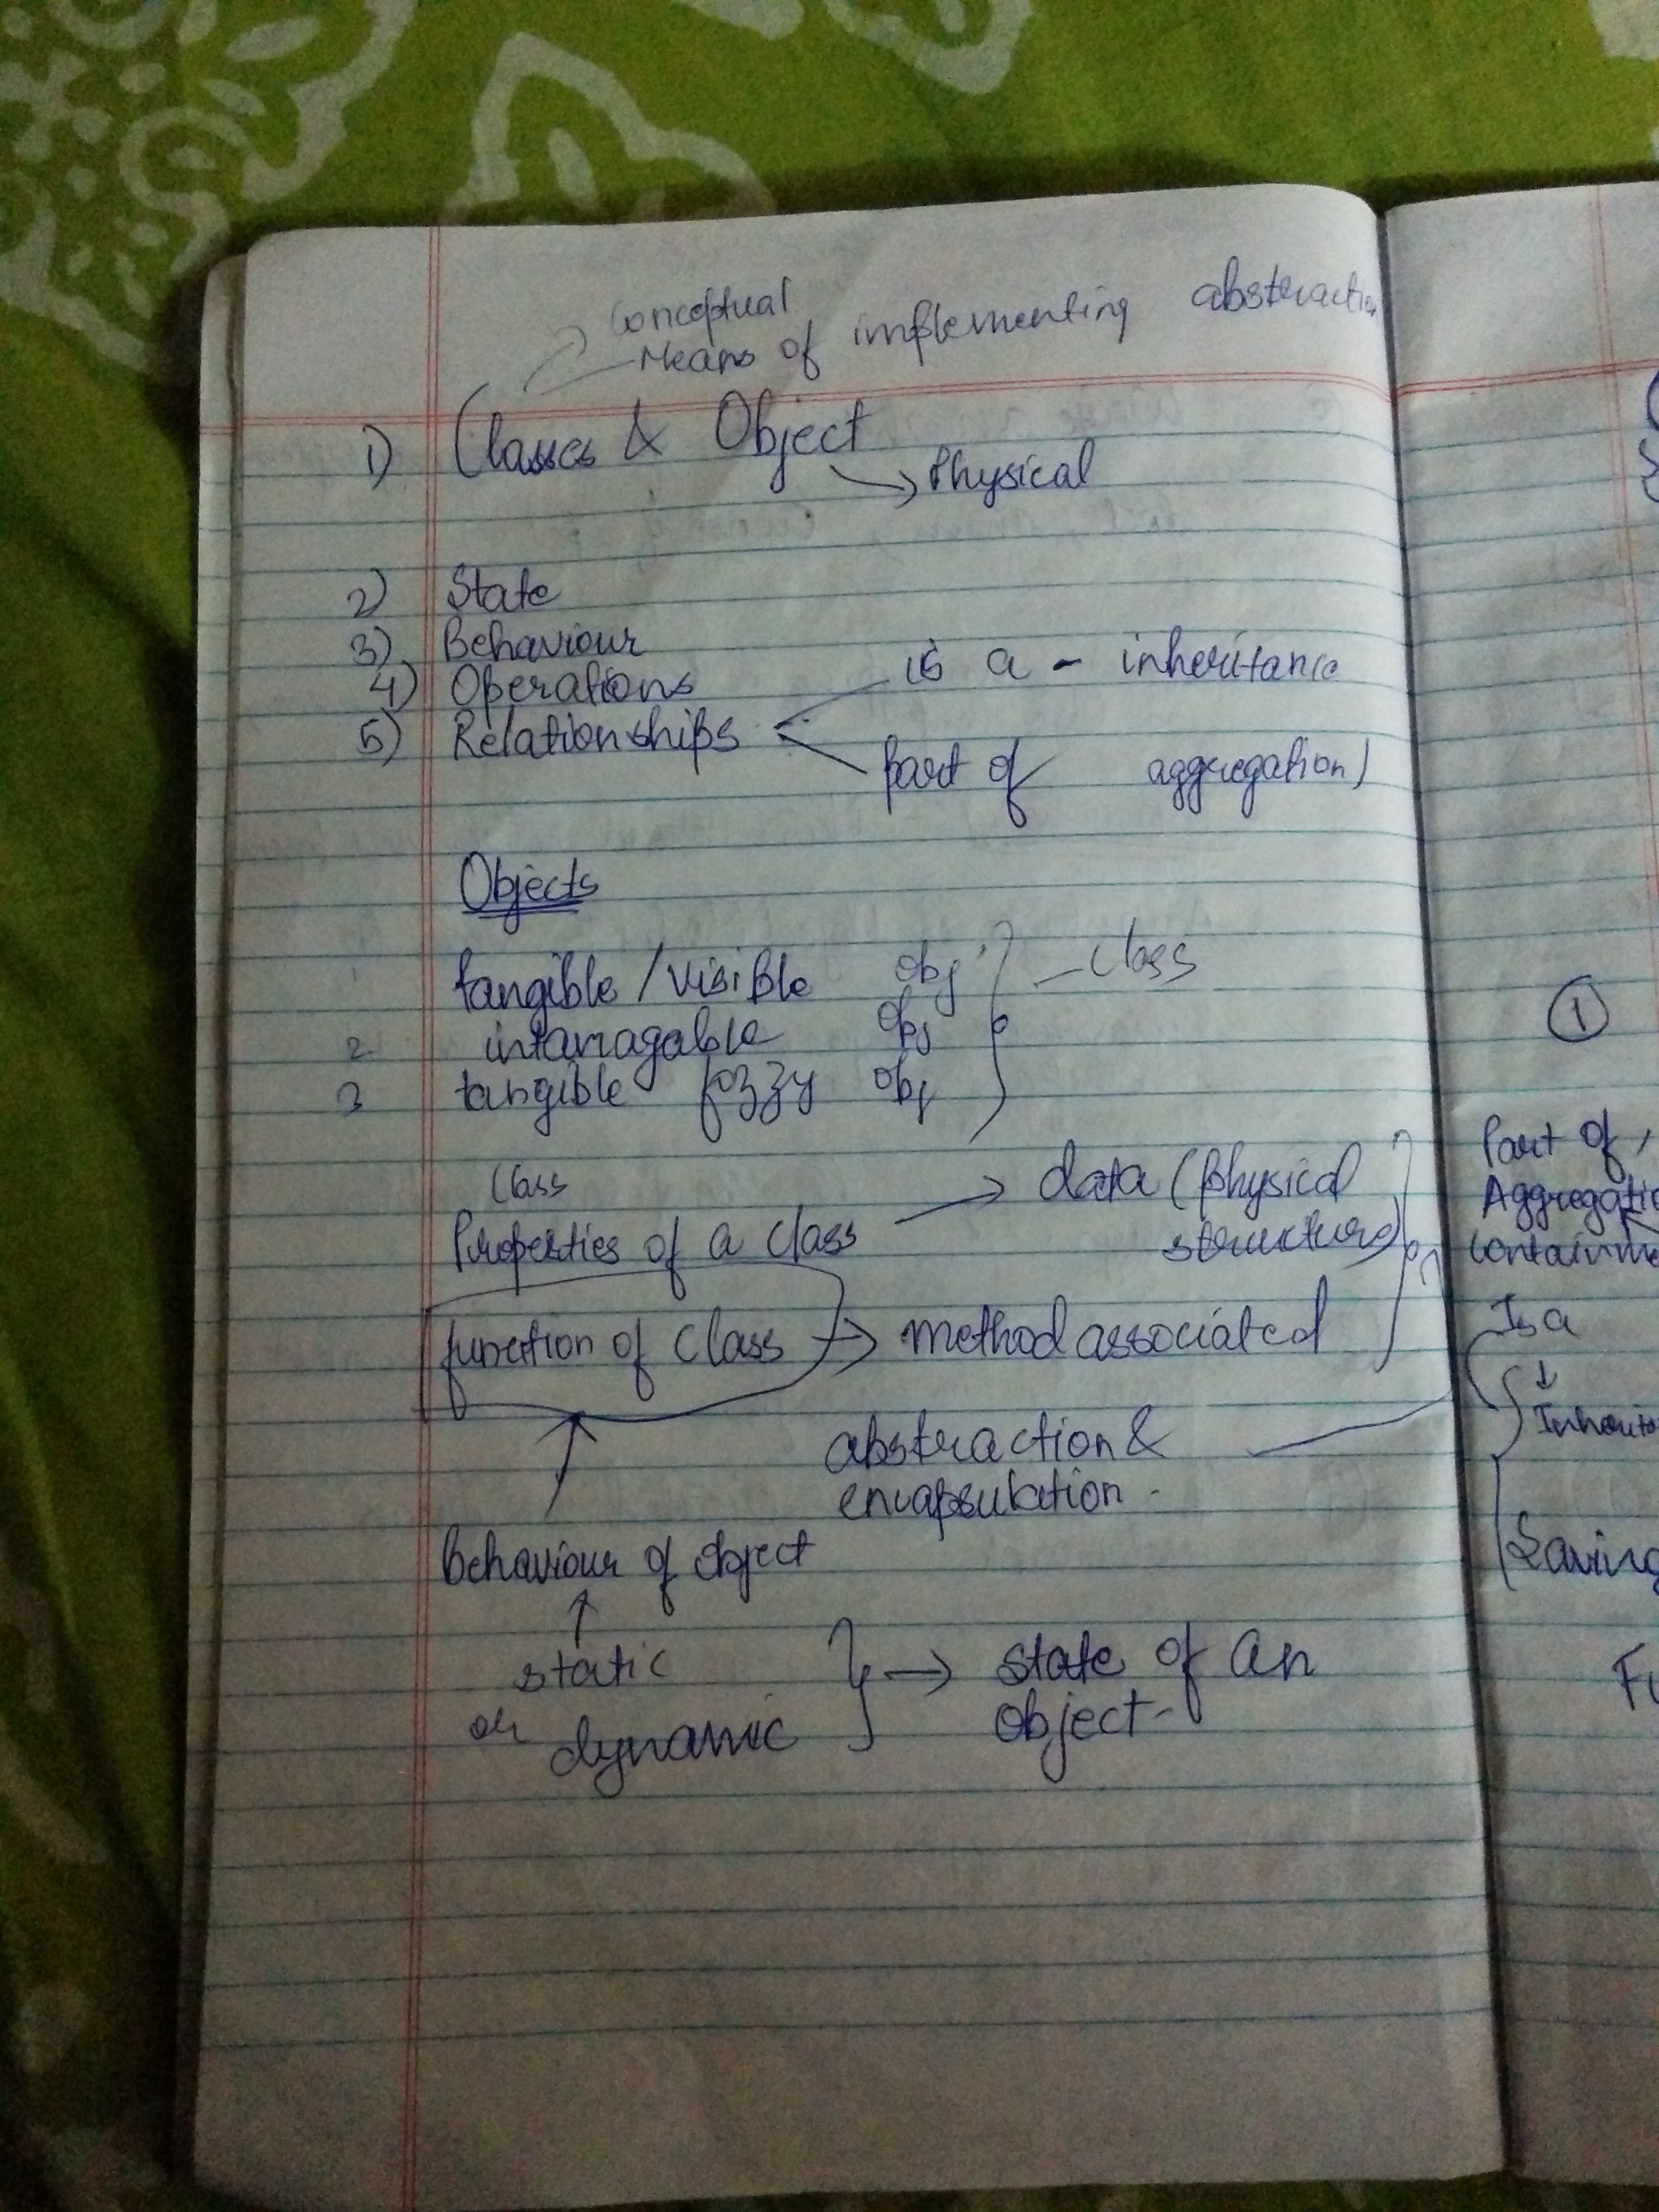 Conceptual
Means of implementing abstraction
1) Classes & Object
Physical
2) State
3) Behaviour
4) Operations
is a - inheritance
5) Relationships
Part of aggregation)
Objects
1 tangible/visible obj
Class
2 intanagable obj
3 tangible fozzy obj
Class
Properties of a class → data (physical
structure)
function of class → method associated
abstraction &
encapsulation.
Behaviour of object
static
or dynamic → state of an
object-
1
Part of,
Aggregatio
Containme
Is a
↓
Inherita
Saving
Fu